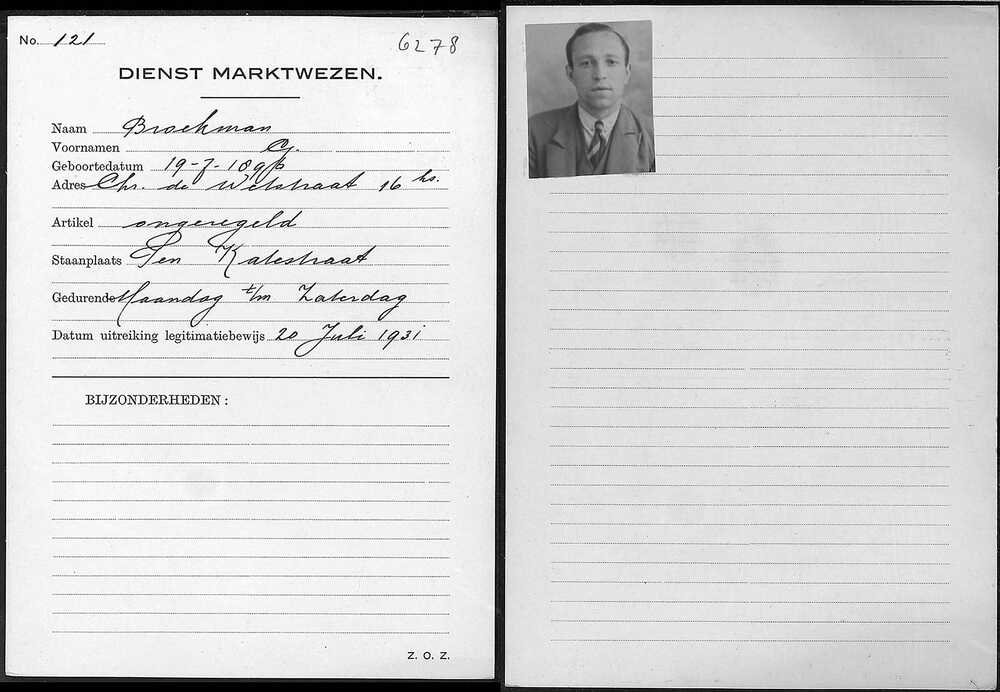 No. 121
6278
DIENST MARKTWEZEN.
Naam Broekman
Voornamen G.
Geboortedatum 19-7-189
Adres Chr. de Wetstraat 16 hs.
Artikel ongeregeld
Staanplaats Ten Katestraat
Gedurende Maandag t/m Zaterdag
Datum uitreiking legitimatiebewijs 20 Juli 1931
BIJZONDERHEDEN:
Z. O. Z.